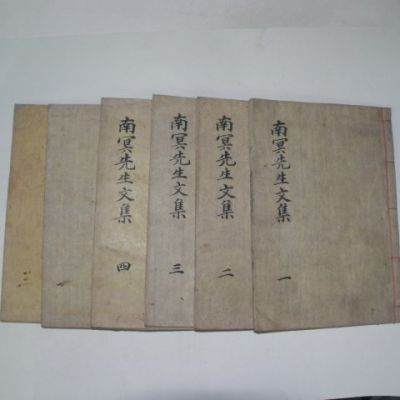 南冥先生文集
一
南冥先生文集
二
南冥先生文集
三
南冥先生文集
四